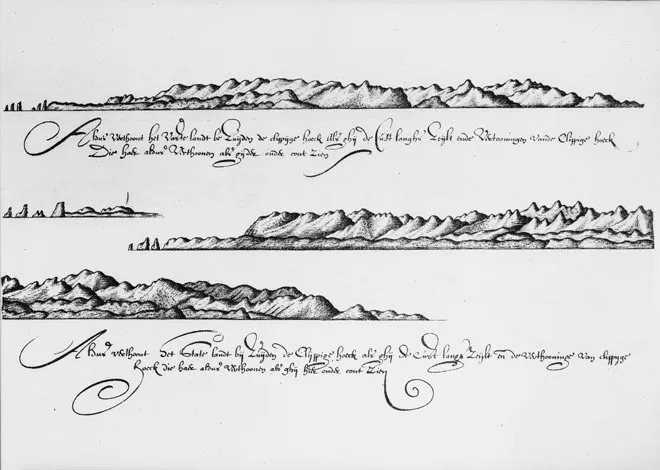 Aldus Verthoont het Vaste landt be Zuijden de clippige hoeck Als ghij de Cust langhs Zeijlt ende Vertooningen Vande Clippige hoeck
Die hem aldus Verthoonen als ghij de onde cont Zien
Aldus Verthoont Het State landt bij Zuijden de Clippige hoeck als ghij de Cust langs Zeijlt en de Verthooninge Van clippige
hoeck die hem aldus Verthoonen als ghij onde cont Zien